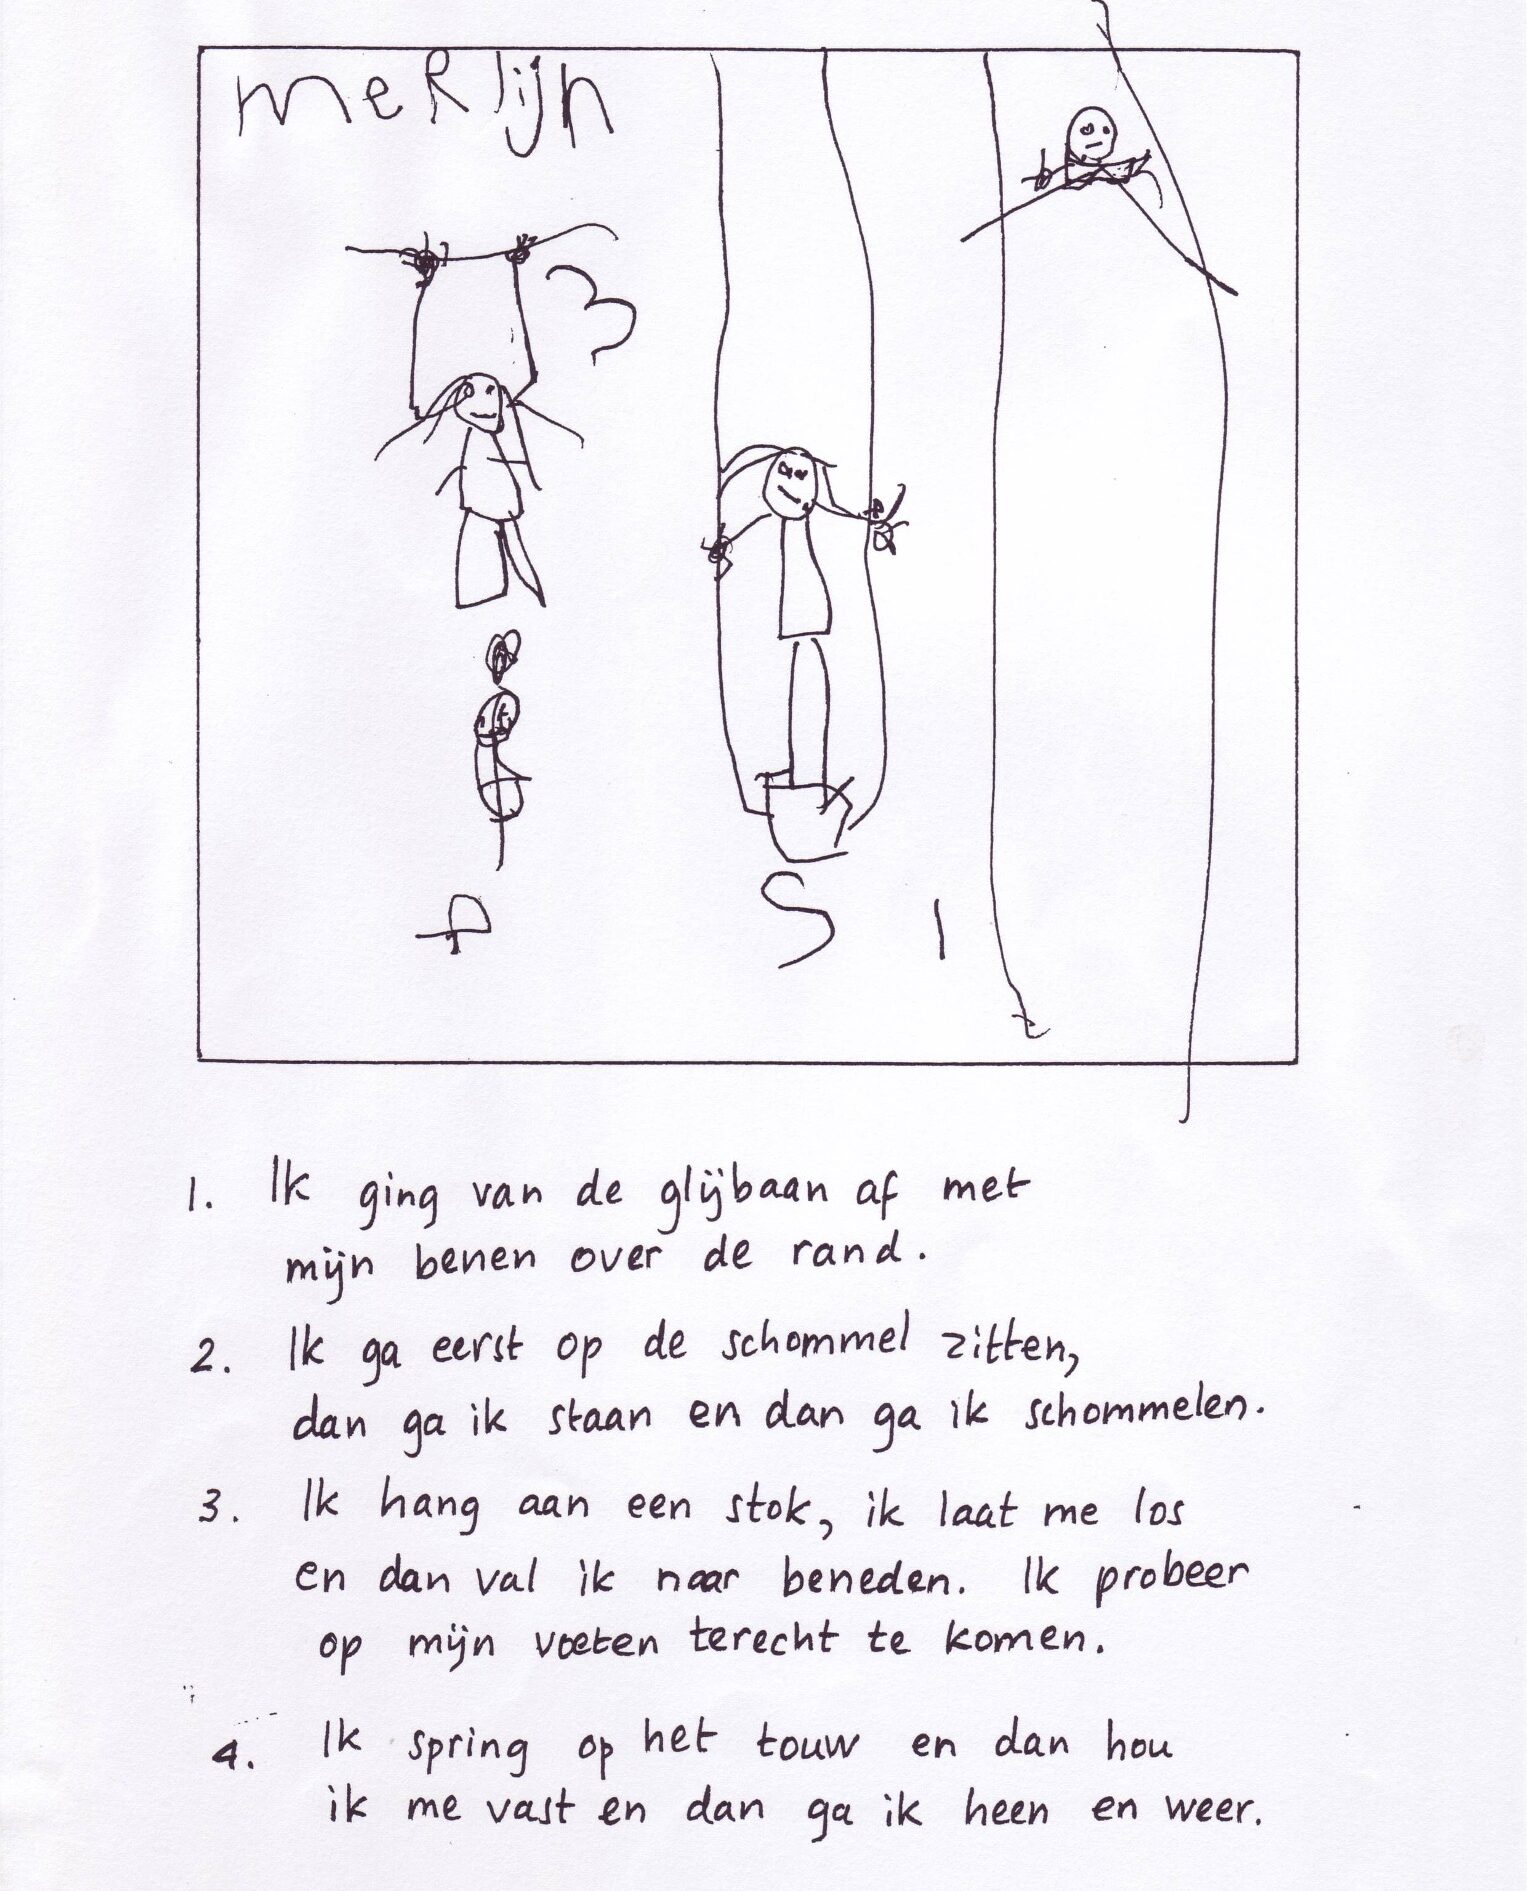 meRlijn
3
S
1
1. Ik ging van de glijbaan af met
mijn benen over de rand.
2. Ik ga eerst op de schommel zitten,
dan ga ik staan en dan ga ik schommelen.
3. Ik hang aan een stok, ik laat me los
en dan val ik naar beneden. Ik probeer
op mijn voeten terecht te komen.
4. Ik spring op het touw en dan hou
ik me vast en dan ga ik heen en weer.